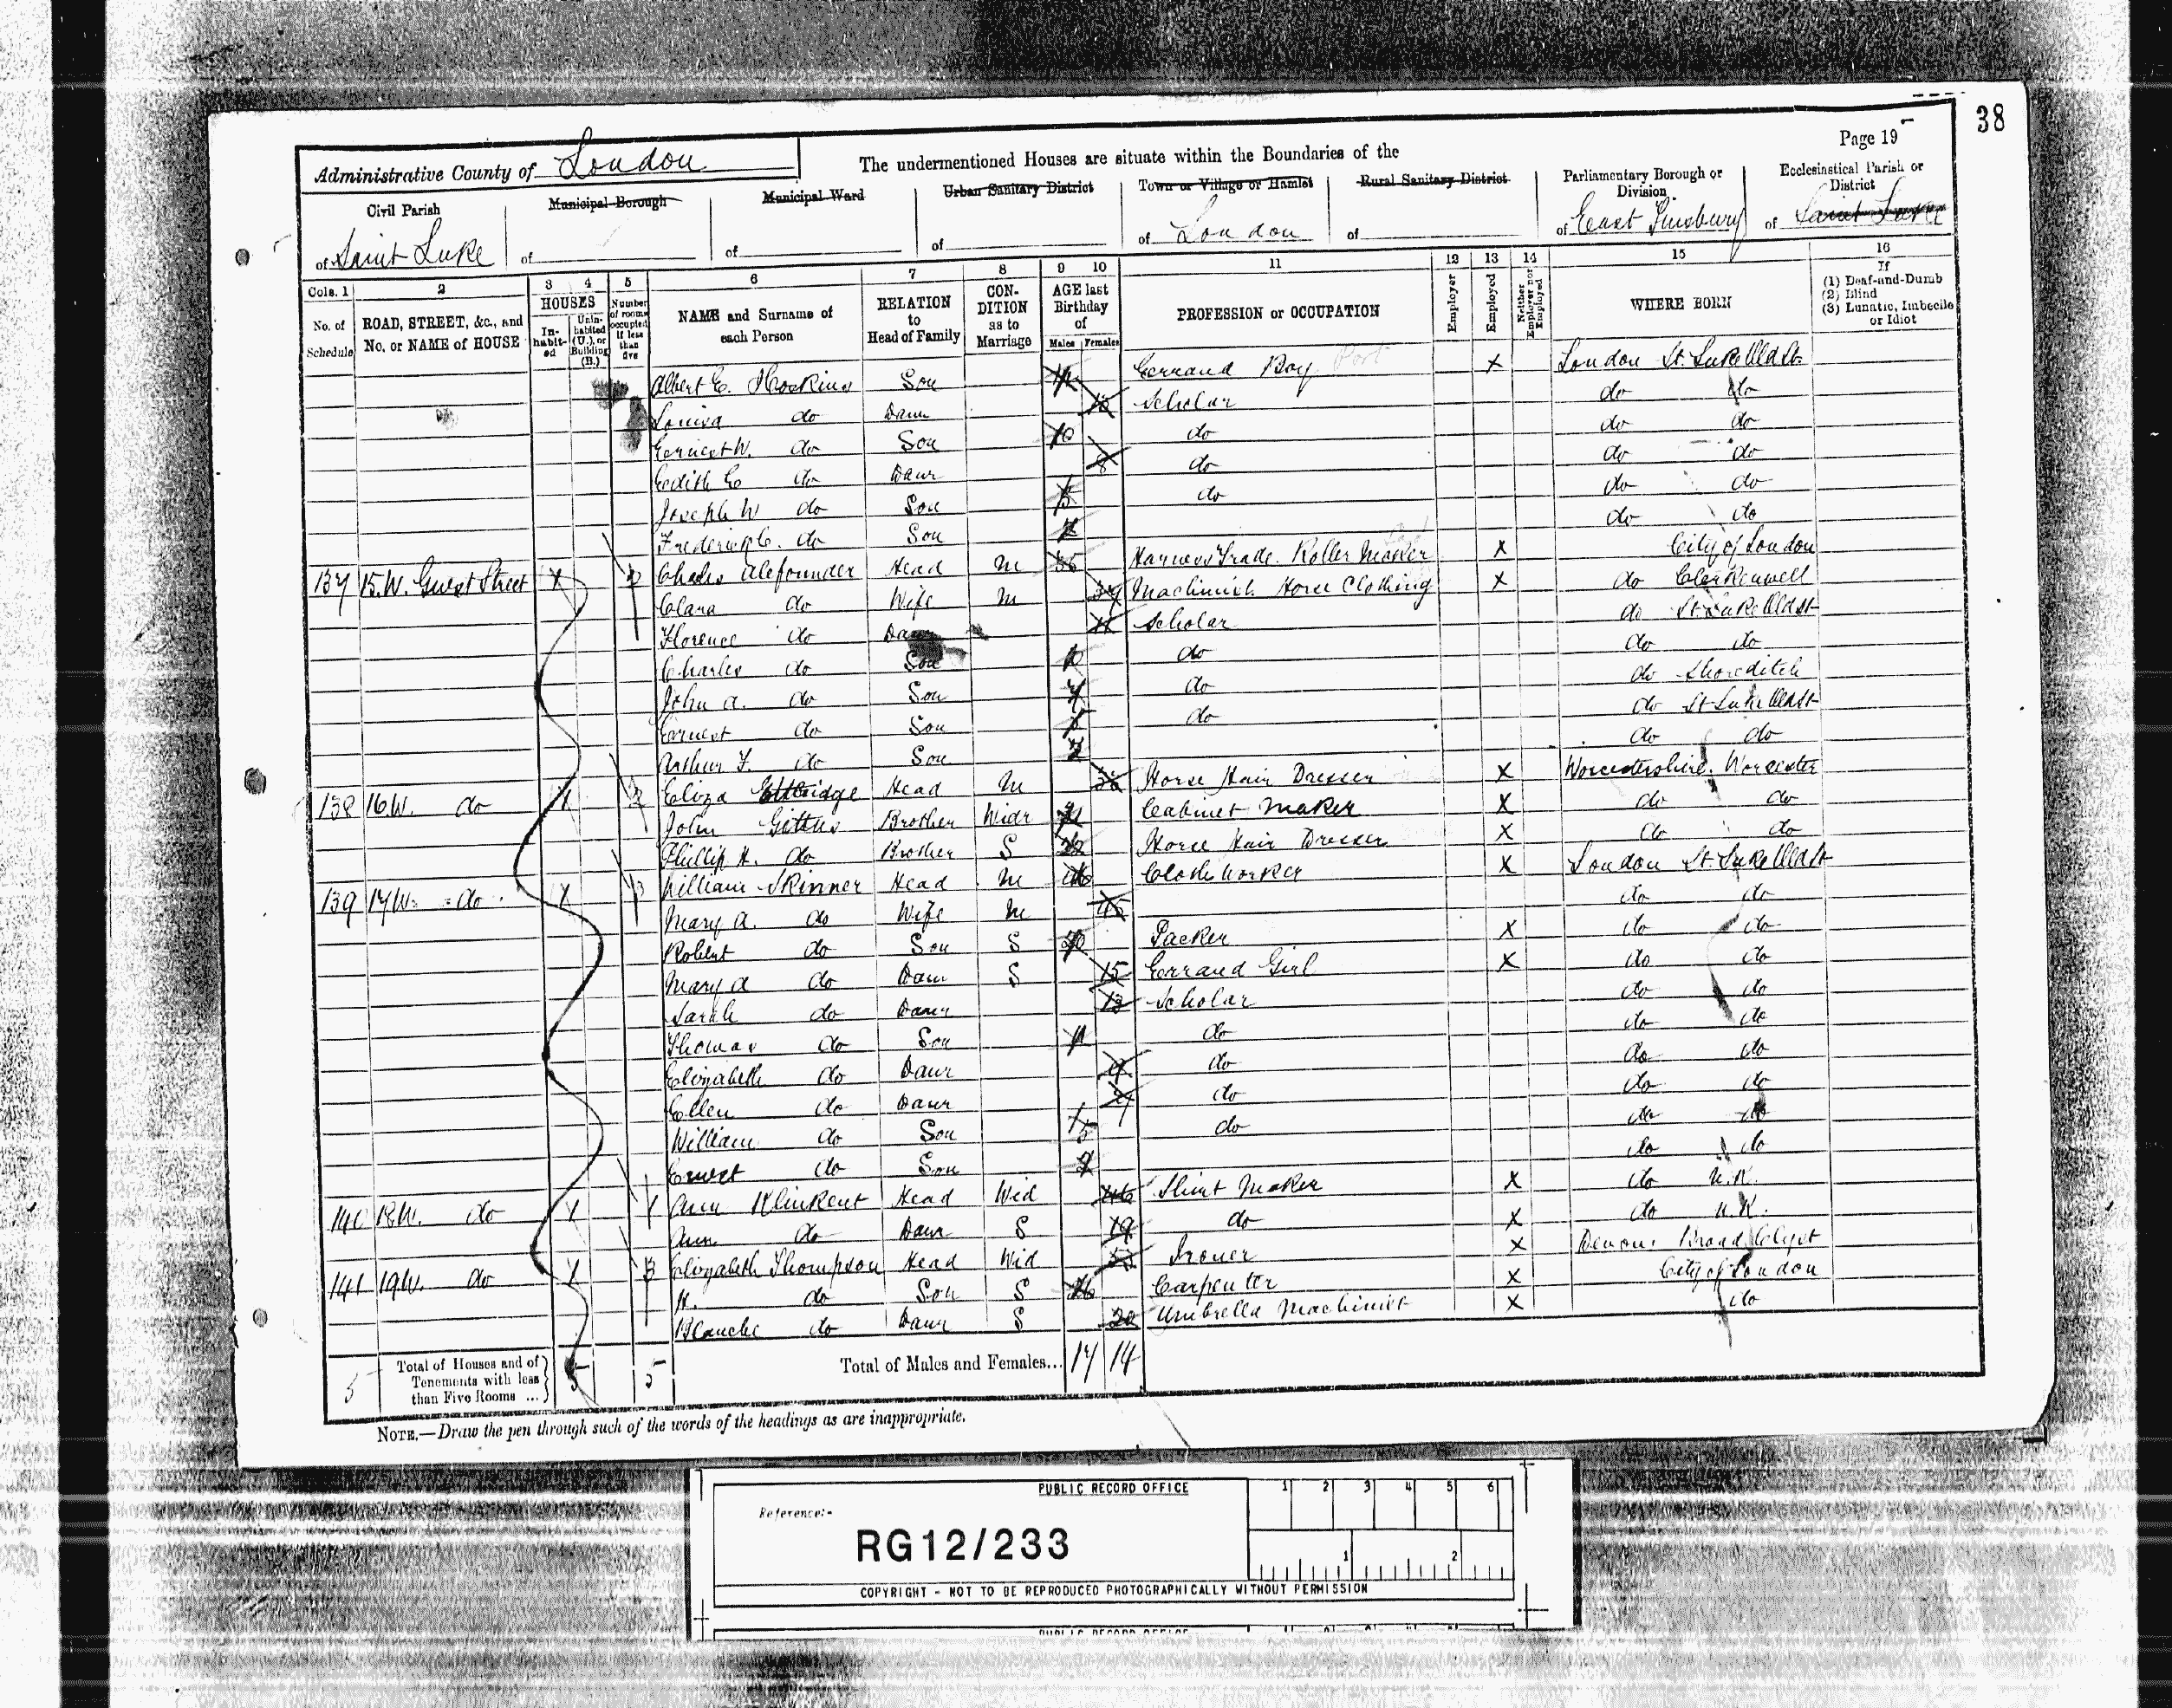 38
Page 19
Administrative County of London
The undermentioned Houses are situate within the Boundaries of the
Civil Parish of Saint Luke
Municipal Borough of
Municipal Ward of
Urban Sanitary District of
Town or Village or Hamlet of London
Rural Sanitary District of
Parliamentary Borough or Division of East Finsbury
Ecclesiastical Parish or District of Saint Luke
Cols. 1 2 3 4 5 6 7 8 9 10 11 12 13 14 15 16
No. of Schedule
ROAD, STREET, &c., and No. or NAME of HOUSE
HOUSES
In-habit-ed
Unin-habited (U.), or Building (B.)
Number of rooms occupied if less than five
NAME and Surname of each Person
RELATION to Head of Family
CON-DITION as to Marriage
AGE last Birthday of
Males Females
PROFESSION or OCCUPATION
Employer
Employed
Neither Employer nor Employed
WHERE BORN
If (1) Deaf-and-Dumb (2) Blind (3) Lunatic, Imbecile or Idiot
Albert E. Hoskins Son Errand Boy X London St. Luke Old St
Louisa do Daur Scholar do do
Ernest W. do Son 10 do do do
Edith E do Daur 8 do do do
Joseph W do Son do do do
Frederick C. do Son 2 do do
137 15.W. Guest Street X Charles Alefounder Head M Harness Trade. Roller Maker X City of London
Clara do Wife M Machinist Horse Clothing X do Clerkenwell
Florence do Daur 11 Scholar do St. Luke Old St
Charles do Son 10 do do do
John A. do Son 7 do do Shoreditch
Ernest do Son do do St Luke Old St
Arthur F. do Son do do
138 16W. do X Eliza Head M Horse Hair Dresser X Worcestershire. Worcester
John Gittus Brother Widr Cabinet Maker X do do
Phillip H. do Brother S Horse Hair Dresser X do do
139 17W. do X 3 William Skinner Head M Cloth worker X London St. Luke Old St
Mary A. do Wife M 45 do do
Robert do Son S 20 Packer X do do
Mary A do Daur S 15 Errand Girl X do do
Sarah do Daur 13 Scholar do do
Thomas do Son 11 do do do
Elizabeth do Daur 9 do do do
Ellen do Daur 7 do do do
William do Son 5 do do do
Ernest do Son 2 do do
140 18W. do X 1 Ann Head Wid 46 Shirt Maker X do N.K.
Ann do Daur S 19 do X do N.K.
141 19W. do X 3 Elizabeth Thompson Head Wid 53 Ironer X Devon. Broad Clyst
H. do Son S 26 Carpenter X City of London
Blanche do Daur S 20 Umbrella Machinist X do
5 Total of Houses and of Tenements with less than Five Rooms ... 5 5 Total of Males and Females... 17 14
NOTE.—Draw the pen through such of the words of the headings as are inappropriate.
PUBLIC RECORD OFFICE
1 2 3 4 5 6
Reference:-
RG12/233
1 2
COPYRIGHT - NOT TO BE REPRODUCED PHOTOGRAPHICALLY WITHOUT PERMISSION
PUBLIC RECORD OFFICE